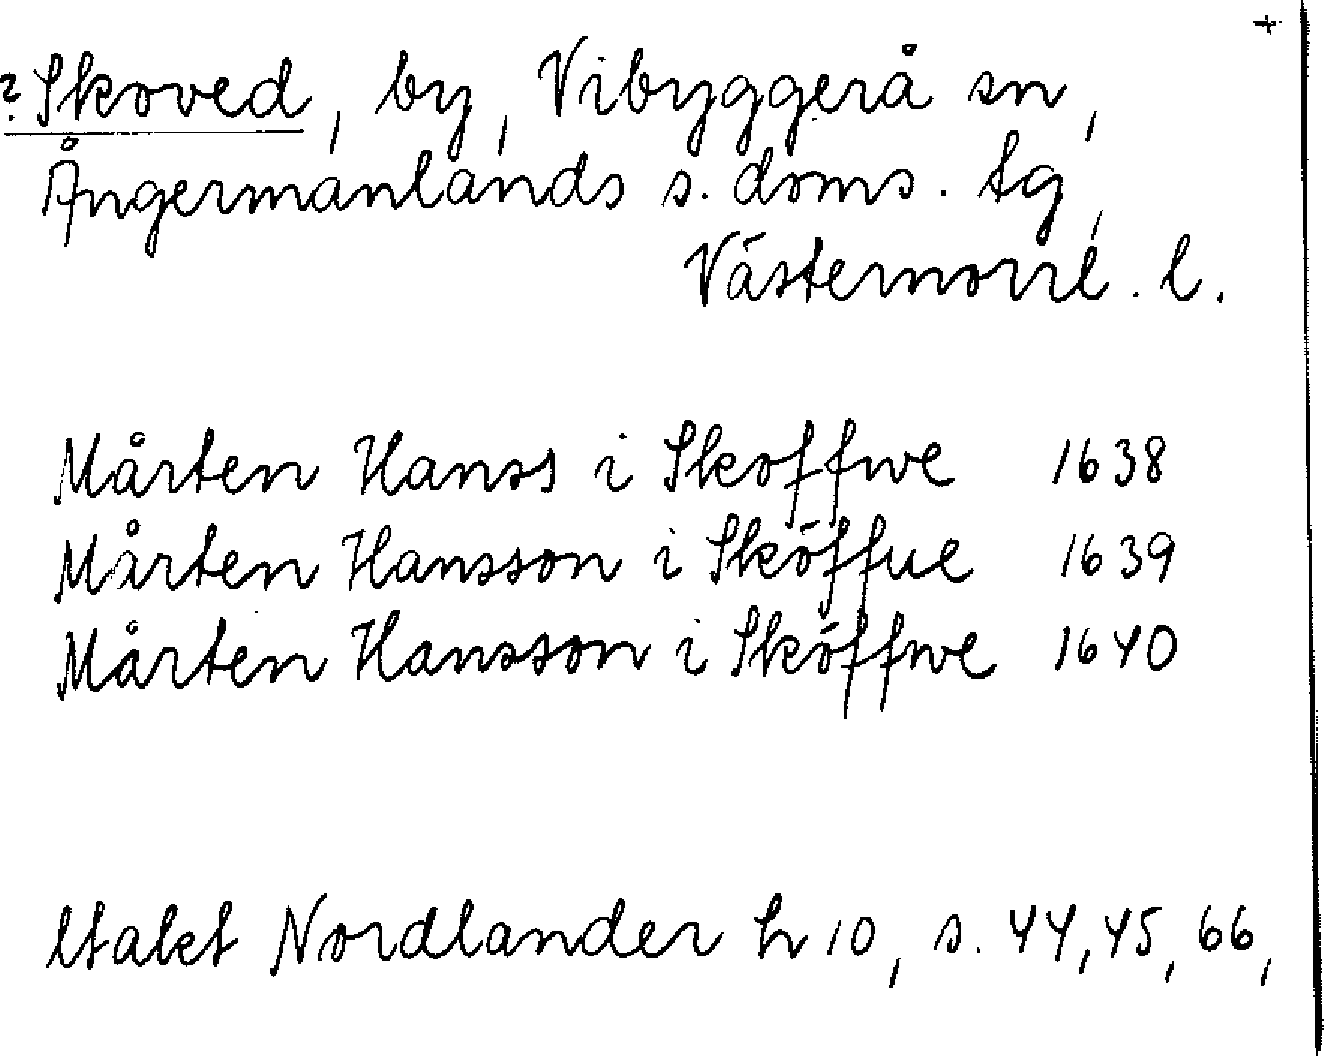 +
? Skoved, by, Vibyggerå sn,
Ångermanlands s. doms. tg,
Västernorrl. l.
Mårten Hanss i Skoffwe 1638
Mårten Hansson i Sköffue 1639
Mårten Hansson i Sköffwe 1640
Utakt Nordlander h 10, s. 44, 45, 66,